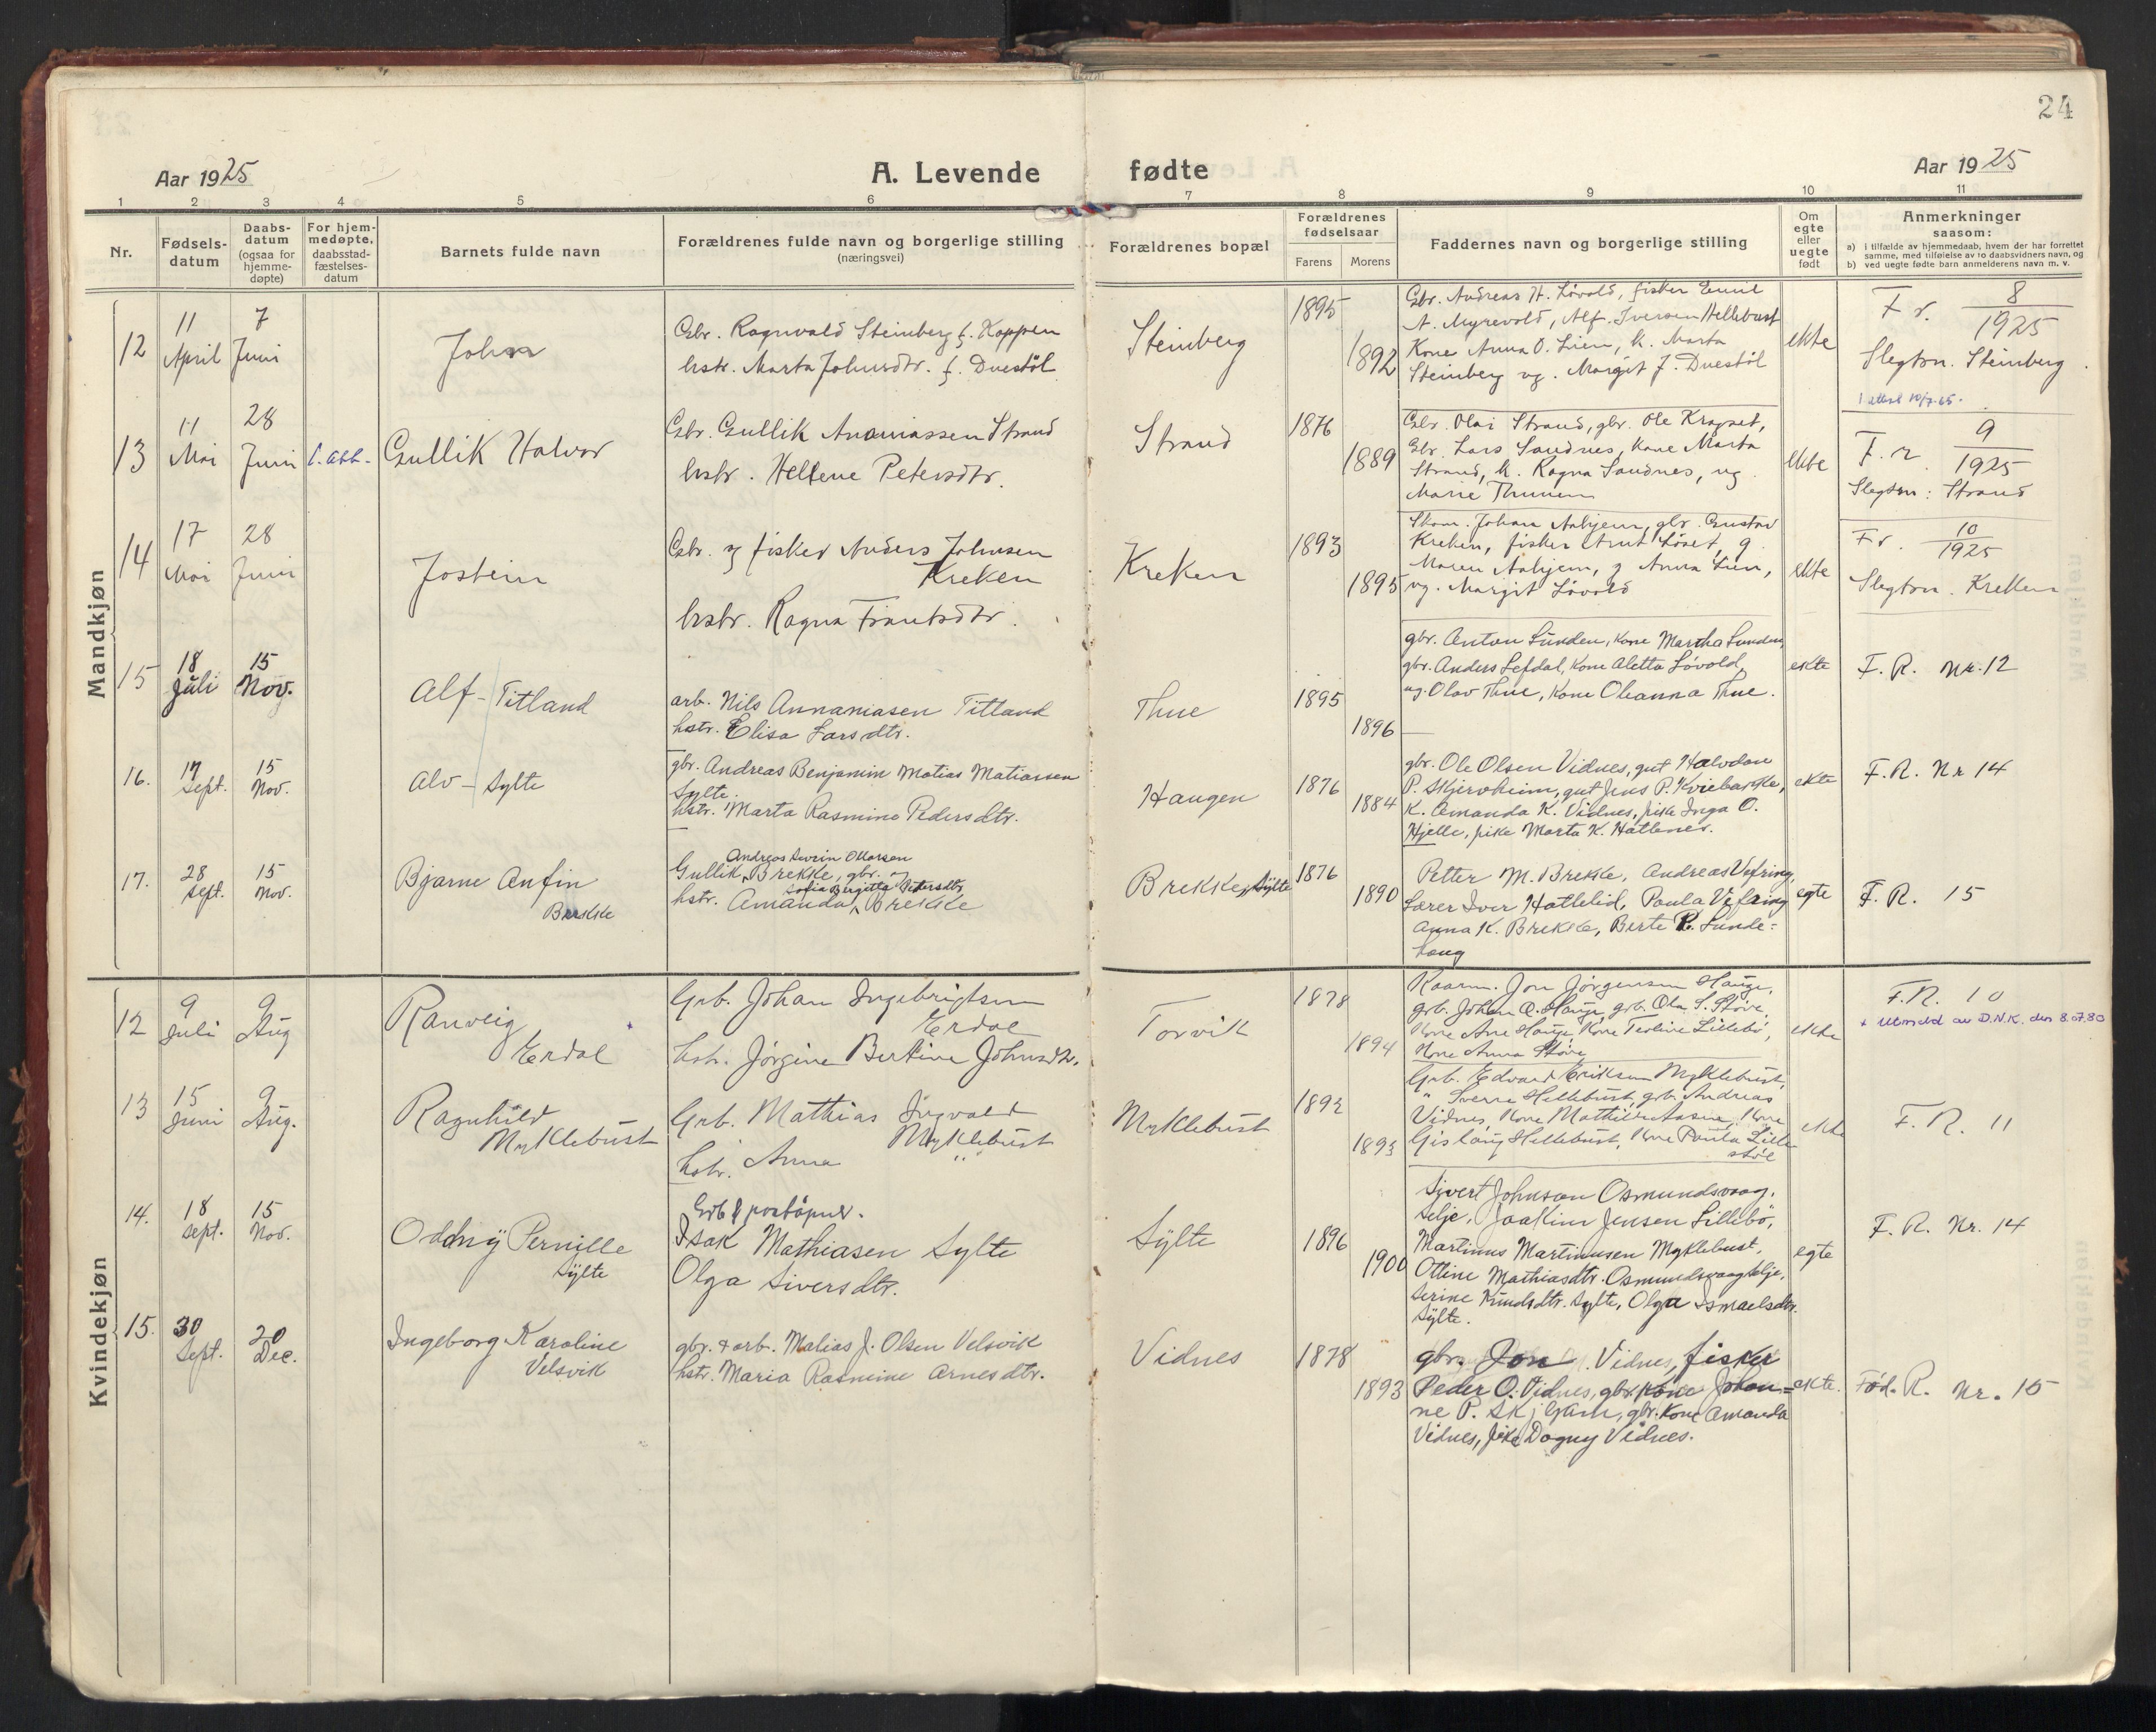 24
Aar 1925
A. Levende fødte
Aar 1925
1 2 3 4 5 6 7 8 9 10 11
Nr.
Fødsels-
datum
Daabs-
datum
(ogsaa for
hjemme-
døpte)
For hjem-
medøpte,
daabsstad-
fæstelses-
datum
Barnets fulde navn
Forældrenes fulde navn og borgerlige stilling
(næringsvei)
Forældrenes bopæl
Forældrenes
fødselsaar
Farens Morens
Faddernes navn og borgerlige stilling
Om
egte
eller
uegte
født
Anmerkninger
saasom:
a) i tilfælde av hjemmedaab, hvem der har forrettet
samme, med tilføielse av to daabsvidners navn, og
b) ved uegte fødte barn anmelderens navn m. v.
Mandkjøn
12
11 April
7 Juni
John
Gbr. Ragnvald Steinberg f. Koppen
hstr. Marta Johnsdtr. f. Duestöl
Steinberg
1895
1892
Gbr. Andreas H. Lövold, fisker Emil
A. Myrevold, Alf. Iversen Hellebust
Kone Anna O. Lien, k. Marta
Steinberg ug. Margit J. Duestöl
ekte
F r. 8/1925
Slegtsn. Steinberg
13
11 Mai
28 Juni
Gullik Halvor
Gbr. Gullik Ananiassen Strand
hstr. Hellene Petersdtr.
Strand
1876
1889
Gbr. Olai Strand, gbr. Ole Kragset,
Gbr. Lars Sandnes, Kone Marta
Strand, k. Ragna Sandnes, ug.
Marie Thunem
ekte
I attest 10/7-65.
F. r. 9/1925
Slegtsn: Strand
14
17 Mai
28 Juni
Jostein
Gbr. og fisker Anders Johnsen
Kreken
hstr. Ragna Frantsdtr.
Kreken
1893
1895
Skom. Johan Aahjem, gbr. Gustav
Kreken, fisker Knut Löset, g.
Maren Aahjem, g Anna Lien,
ug. Margit Lövold
ekte
F r. 10/1925
Slegtsn. Kreken
15
18 Juli
15 Nov.
Alf - Titland
arb. Nils Annaniasen Titland
hstr. Elisa Larsdtr.
Thue
1895
1896
gbr. Anton Sunden, Kone Martha Sunden,
gbr. Anders Lefdal, Kone Aletta Lövold,
ug. Olav Thue, Kone Oleanna Thue.
ekte
F. R. Nr. 12
16.
17 Sept.
15 Nov.
Alv - Sylte
gbr. Andreas Benjamin Matias Matiassen
Sylte.
hstr. Marta Rasmine Pedersdtr.
Haugen
1876
1884
gbr. Ole Olsen Vidnes, gut Halvdan
P. Skjervheim, gut Jens P. Kviebakke,
K. Amanda K. Vidnes, pike Inga O.
Hjelle, pike Marta K. Hatlenes.
ekte
F. R. Nr 14
17.
28 Sept.
15 Nov.
Bjarne Anfin
Brekke
Andreas Severin Ottarsen
Gullik Brekke, gbr. og
Sofia Bergitta Petersdtr.
hstr. Amanda Brekke
Brekke, Sylte
1876
1890
Petter M. Brekke, Andreas Vefring,
Lærer Iver Hatlelid, Paula Vefring
Anna K. Brekke, Berte R. Sunde-
haug
egte
F. R. 15
Kvindekjøn
12
9 Juli
9 Aug
Ranveig
Erdal
Grb. Johan Ingebrigtsen
Erdal
hstr. Jörgine Bertine Johnsdtr.
Torvik
1878
1894
Kaarm. Jon Jørgensen Hauge,
grb. Johan O. Hauge, grb. Ola S. Støve,
Kone Ane Hauge, Kone Teoline Lillebö,
Kone Anna Støve
ekte
F. R. 10
+ Utmeldt av D.N.K. den 8.07.80
13
15 Juni
9 Aug.
Ragnhild
Myklebust
Grb. Mathias Ingvald
Myklebust
hstr. Anna "
Myklebust
1892
1893
Grb. Edvard Eriksen Myklebust,
" Sverre Hellebust, grb. Andreas
Vidnes, Kone Mathilde Aasen, Kone
Gislaug Hellebust, Kone Paula Lille
støl
ekte
F. R. 11
14.
18 Sept.
15 Nov.
Oddny Pernille
Sylte
Grb & postöpnr.
Isak Mathiasen Sylte
Olga Siversdtr.
Sylte
1896
1900
Sivert Johnson Osmundsvaag,
Selje, Joakim Jensen Lillebö,
Martinus Martinusen Myklebust,
Ottine Mathiasdtr. Osmundsvaag Selje,
Serine Knudsdtr. Sylte, Olga Ismaelsdtr.
Sylte.
egte
F. R. Nr. 14
15.
30 Sept.
20 Dec.
Ingeborg Karoline
Velsvik
gbr. & arb. Matias J. Olsen Velsvik
hstr. Maria Rasmine Arnesdtr.
Vidnes
1878
1893
gbr. Jon Vidnes, fisker
Peder O. Vidnes, gbr. kone Johan-
ne P. Skjljam, gbr. Kone Amanda
Vidnes, pike Dagny Vidnes.
ekte.
Fød. R. Nr. 15